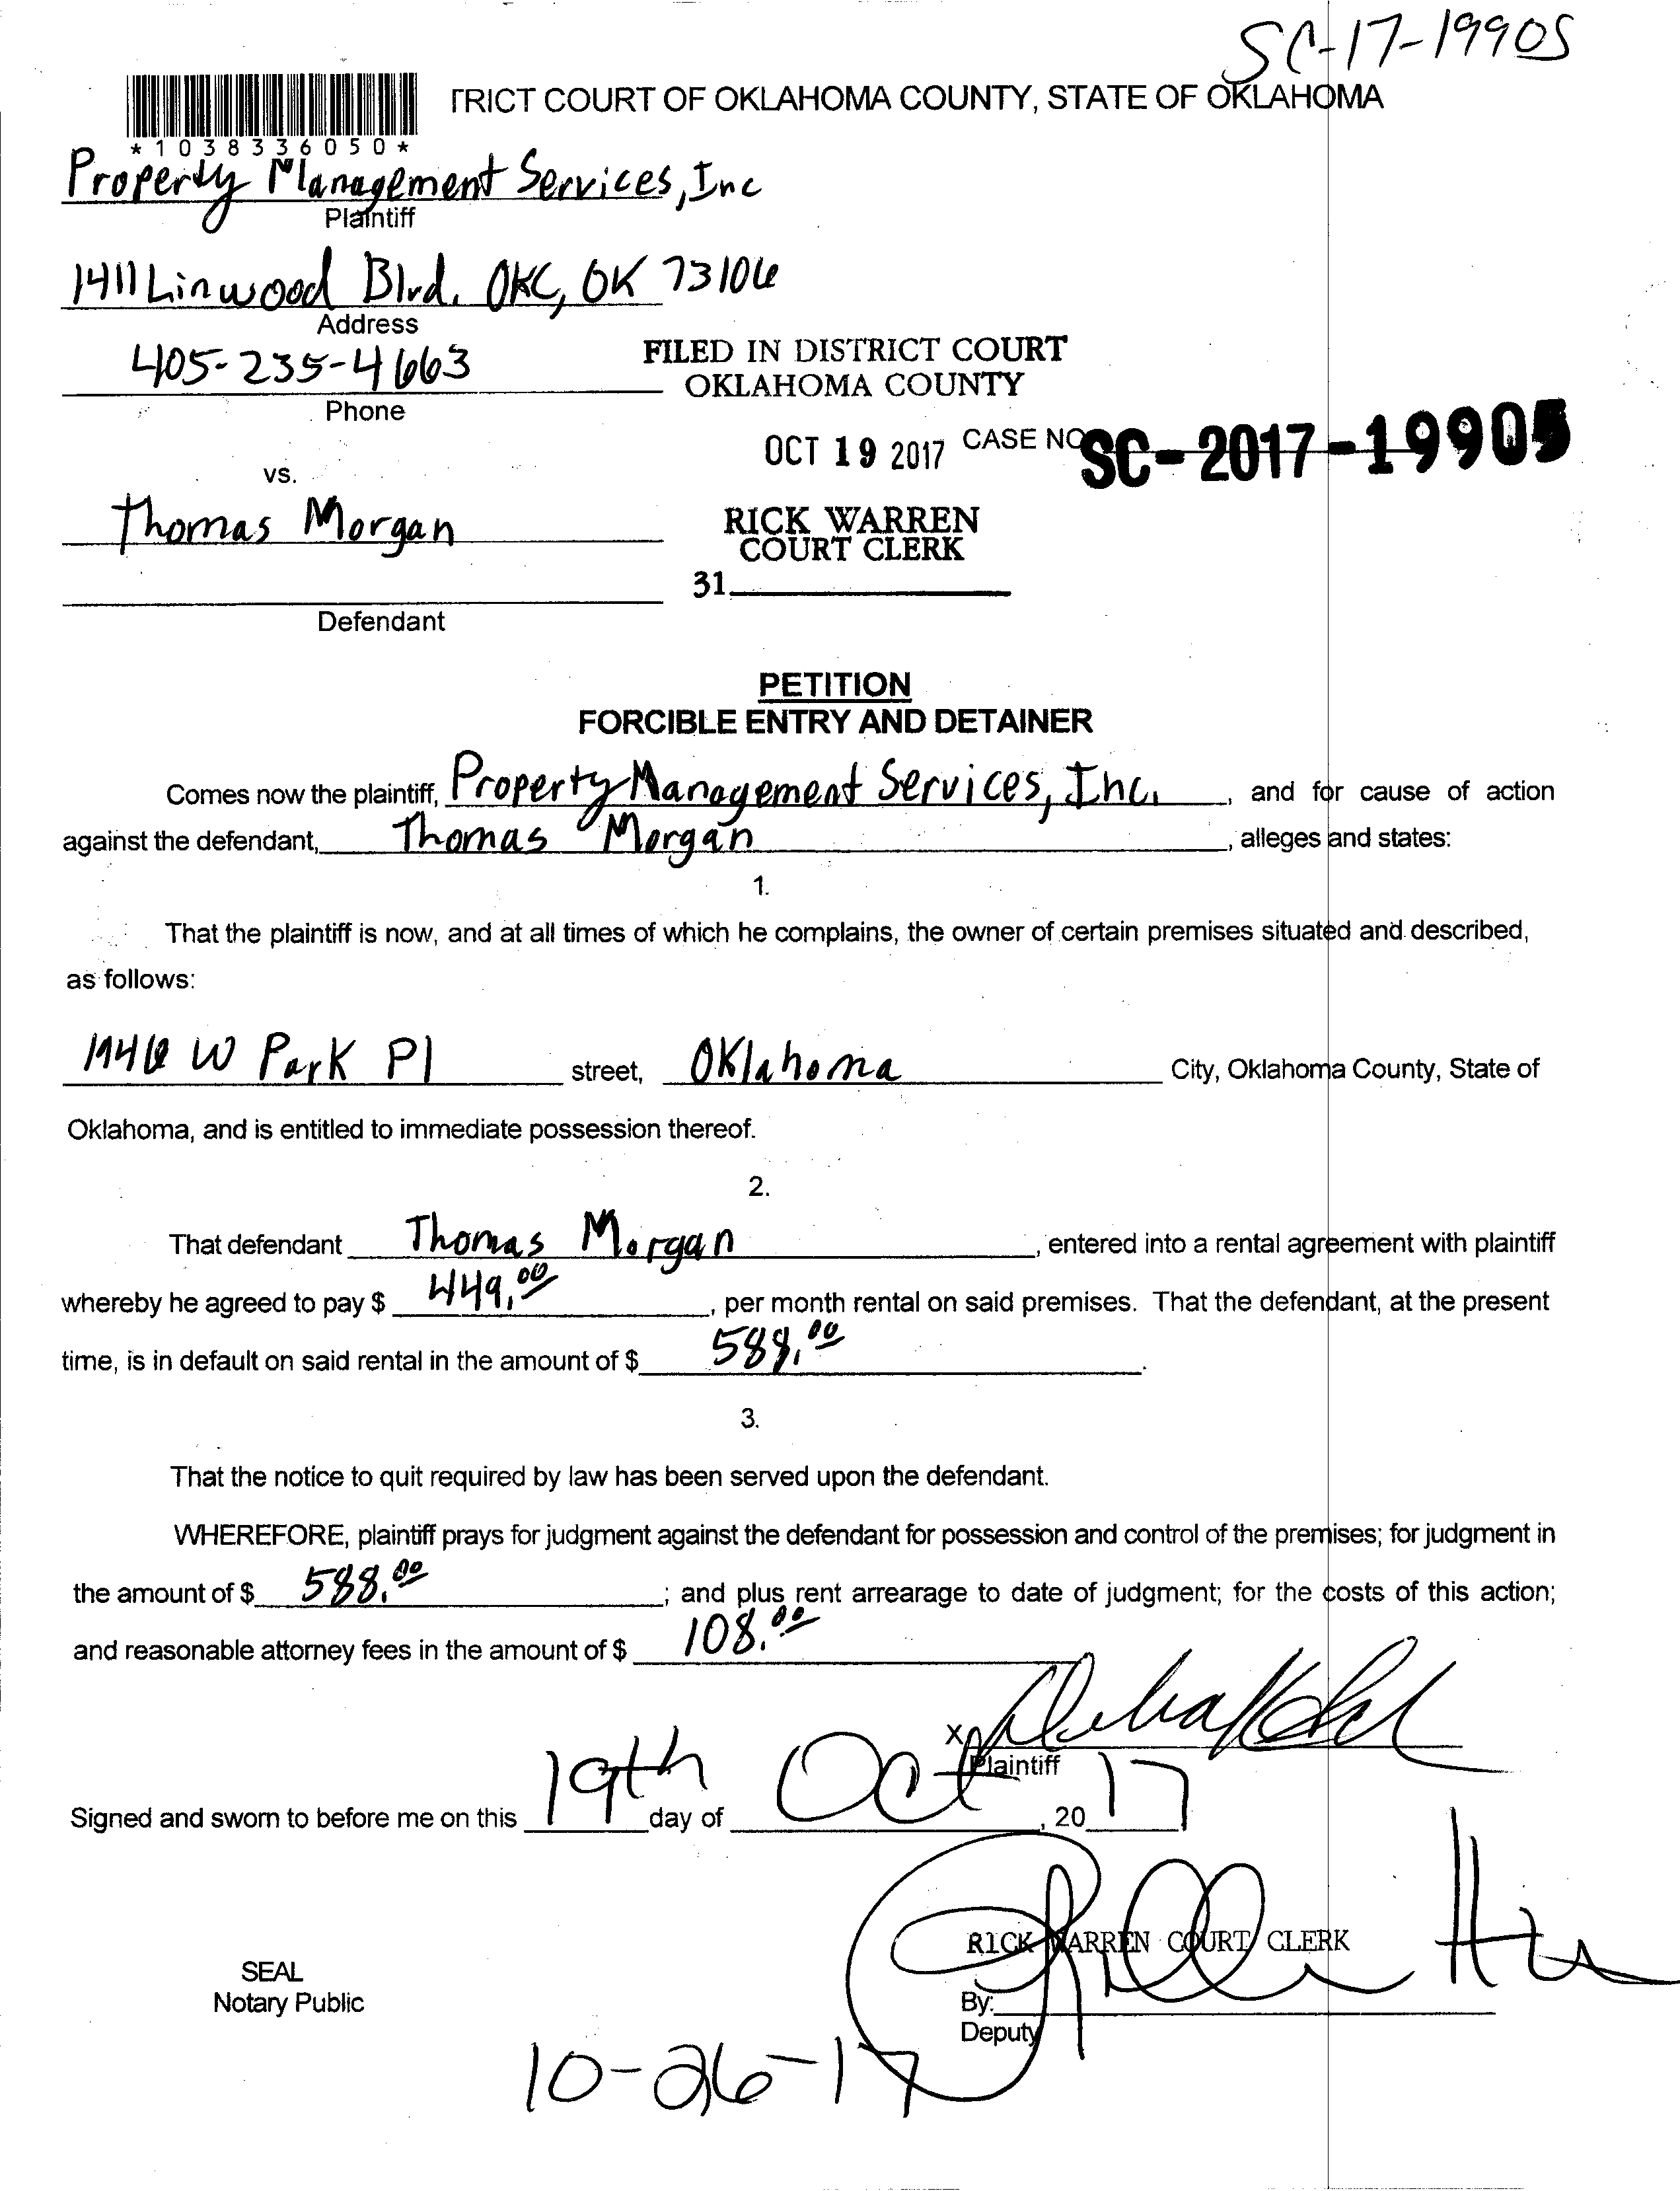 SC-17-19905
TRICT COURT OF OKLAHOMA COUNTY, STATE OF OKLAHOMA
*1038336050*
Property Management Services, Inc
Plaintiff
1411 Linwood Blvd. OKC, OK 73106
Address
405-235-4663
Phone
FILED IN DISTRICT COURT
OKLAHOMA COUNTY
OCT 19 2017 CASE NO SC-2017-19905
vs.
Thomas Morgan
RICK WARREN
COURT CLERK
31
Defendant
PETITION
FORCIBLE ENTRY AND DETAINER
Comes now the plaintiff, Property Management Services, Inc. , and for cause of action
against the defendant, Thomas Morgan , alleges and states:
1.
That the plaintiff is now, and at all times of which he complains, the owner of certain premises situated and described,
as follows:
W Park Pl street, Oklahoma City, Oklahoma County, State of
Oklahoma, and is entitled to immediate possession thereof.
2.
That defendant Thomas Morgan , entered into a rental agreement with plaintiff
whereby he agreed to pay $ 449.00 , per month rental on said premises. That the defendant, at the present
time, is in default on said rental in the amount of $ 588.00 .
3.
That the notice to quit required by law has been served upon the defendant.
WHEREFORE, plaintiff prays for judgment against the defendant for possession and control of the premises; for judgment in
the amount of $ 588.00 ; and plus rent arrearage to date of judgment; for the costs of this action;
and reasonable attorney fees in the amount of $ 108.00
X
Plaintiff
Signed and sworn to before me on this 19th day of Oct , 20 17
RICK WARREN COURT CLERK
SEAL
Notary Public
By:
Deputy
10-26-17